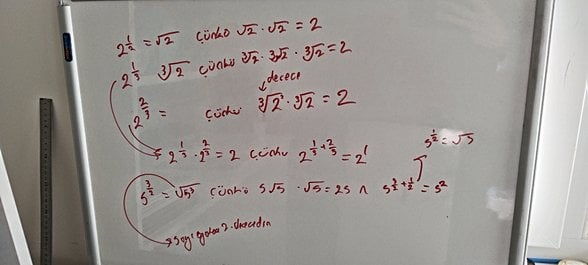 2^{1/2} = √2 çünkü √2 · √2 = 2
2^{1/3} ∛2 çünkü ∛2 · ∛2 · ∛2 = 2
derece
2^{2/3} = çünkü ∛2² · ∛2 = 2
2^{1/3} · 2^{2/3} = 2 çünkü 2^{1/3 + 2/3} = 2^1
5^{1/2} = √5
5^{3/2} = √5³ çünkü 5√5 · √5 = 25 ∧ 5^{3/2 + 1/2} = 5²